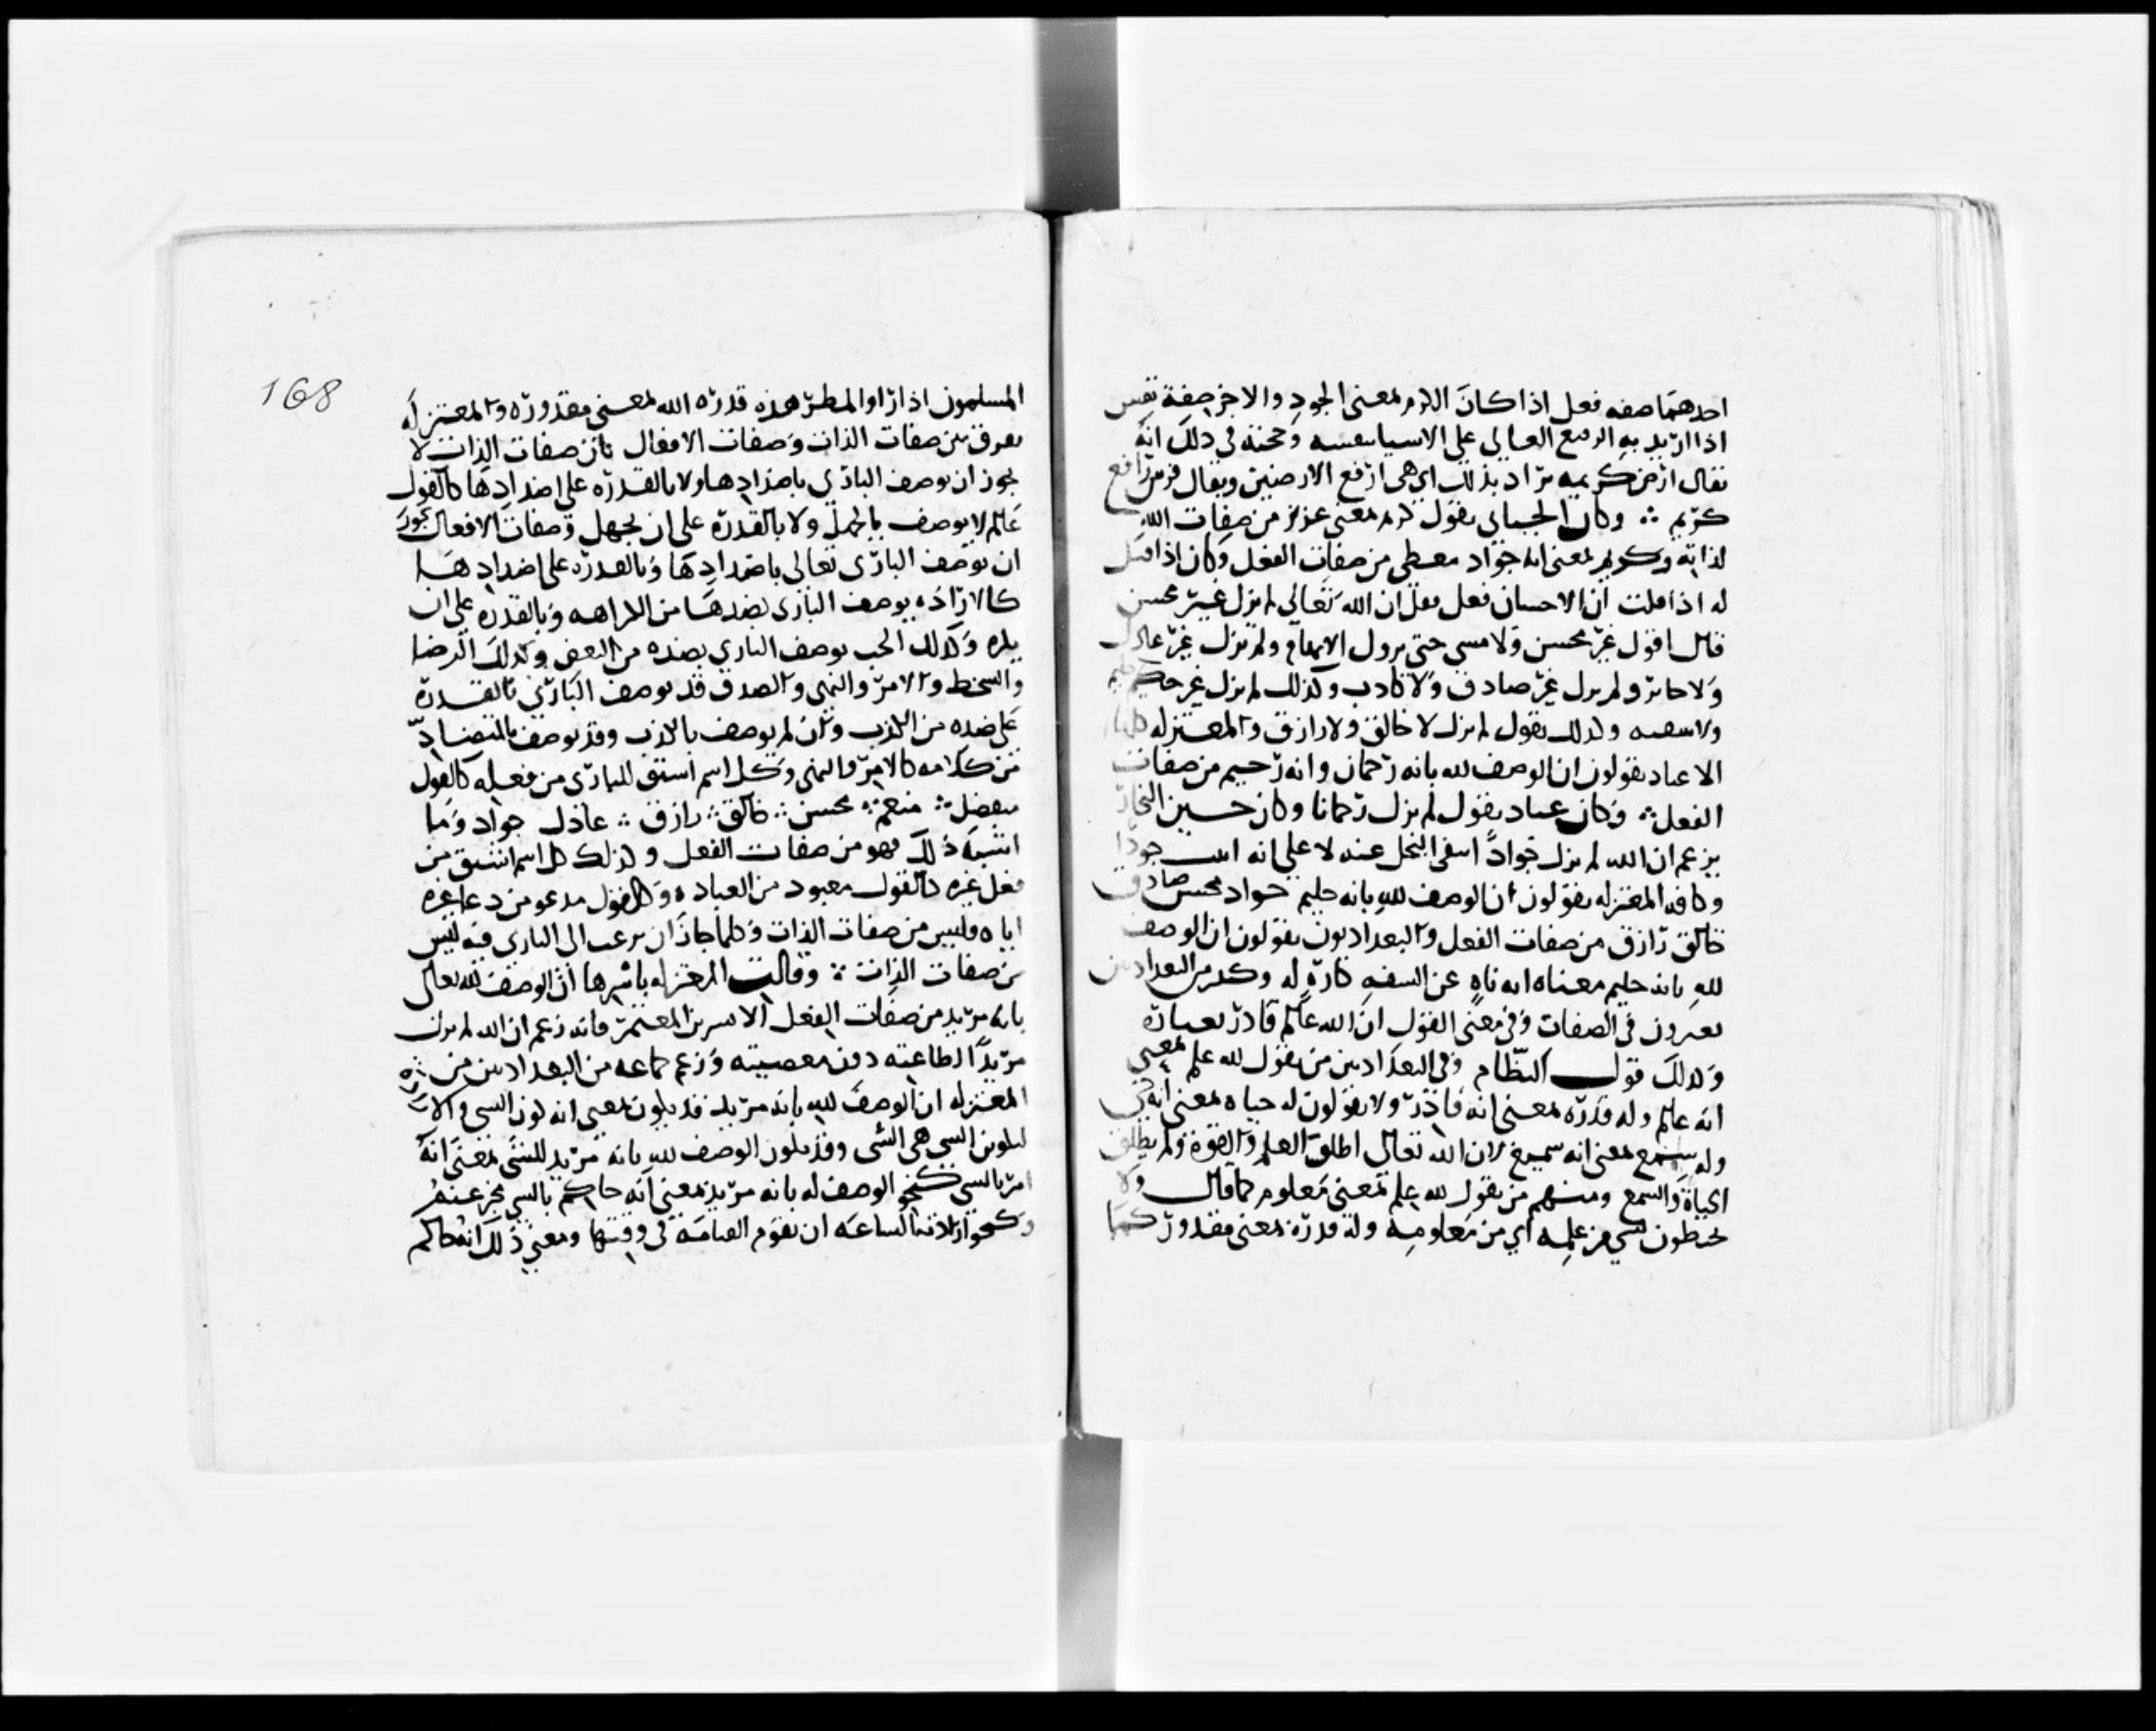 احدهما صفه فعل اذا كان الكرم بمعنى الجود والاخر صفة نفس
اذا اريد به الرفيع العالى على الاشيا بنفسه وحجته فى ذلك انه
يقال ارض كريمه يراد بذلك اى هى ارفع الارضين ويقال فرس رافع
كريم ∴ وكان الجبائى يقول كريم بمعنى عزيز من صفات الله
لذاته وكريم بمعنى انه جواد معطى من صفات الفعل وكان اذا قيل
له اذا قلت ان الاحسان فعل فقل ان الله تعالى لم يزل غير محسن
قال اقول غير محسن ولا مسى حتى يزول الايهام ولم يزل غير عادل
ولا جائر ولم يزل غير صادق ولا كاذب وكذلك لم يزل غير حليم
ولا سفيه وكذلك يقول لم يزل لا خالق ولا رازق والمعتزله كلها
الا عباد يقولون ان الوصف لله بانه رحمان وانه رحيم من صفات
الفعل ∴ وكان عباد يقول لم يزل رحمانا وكان حسين النجار
يزعم ان الله لم يزل جوادا بنفى البخل عنه لا على انه اثبت جودا
وكافه المعتزله يقولون ان الوصف لله بانه حليم جواد محسن صادق
خالق رازق من صفات الفعل والبغداديون يقولون ان الوصف
لله بانه حليم معناه انه ناهٍ عن السفه كاره له وكثير من البغداديين
يعبرون فى الصفات وفى معنى القول ان الله عالم قادر بعباره
وكذلك قول النظام وفى البغداديين من يقول لله علم بمعنى
انه عالم وله قدره بمعنى انه قادر ولا يقولون له حياه بمعنى انه حى
وله سمع بمعنى انه سميع لان الله تعالى اطلق العلم والقوة ولم يطلق
الحياة والسمع ومنهم من يقول لله علم بمعنى معلوم كما قال ولا
يحيطون بشى من علمه اى من معلومه وله قدره بمعنى مقدور كما
168
المسلمون اذا راوا المطر هذه قدره الله بمعنى مقدوره والمعتزله
تفرق بين صفات الذات وصفات الافعال بان صفات الذات لا
يجوز ان يوصف البارى باضدادها ولا بالقدره على اضدادها كالقول
عالم لا يوصف بالجهل ولا بالقدره على ان يجهل وصفات الافعال يجوز
ان يوصف البارى تعالى باضدادها وبالقدره على اضدادها
كالاراده يوصف البارى بضدها من الكراهه وبالقدره على ان
يكره وكذلك الحب يوصف البارى بضده من البغض وكذلك الرضا
والسخط والامر والنهى والصدق قد يوصف البارى بالقدرة
على ضده من الكذب وان لم يوصف بالكذب وقد يوصف بالمتضاد
من كلامه كالامر والنهى وكل اسم اشتق للبارى من فعله كالقول
متفضل ∴ منعم ∴ محسن ∴ خالق ∴ رازق ∴ عادل جواد وما
اشبه ذلك فهو من صفات الفعل وكذلك كل اسم اشتق من
فعل غيره كالقول معبود من العباده وكالقول مدعو من دعا غيره
اياه فليس من صفات الذات وكلما جاز ان يرغب الى البارى فيه ليس
من صفات الذات ∴ وقالت المعتزله باسرها ان الوصف لله تعالى
بانه مريد من صفات الفعل الا بشر بن المعتمر فانه زعم ان الله لم يزل
مريدا لطاعته دون معصيته وزعم جماعه من البغداديين من
المعتزله ان الوصف لله بانه مريد قد يكون بمعنى انه كون الشى والاراده
لتكوين الشى هى الشى وقد يكون الوصف لله بانه مريد للشى بمعنى انه
امر بالشى كنحو الوصف له بانه مريد بمعنى انه حاكم بالشى مخبر عنه
وكنحو ارادته الساعه ان تقوم القيامة فى وقتها ومعنى ذلك انه حاكم